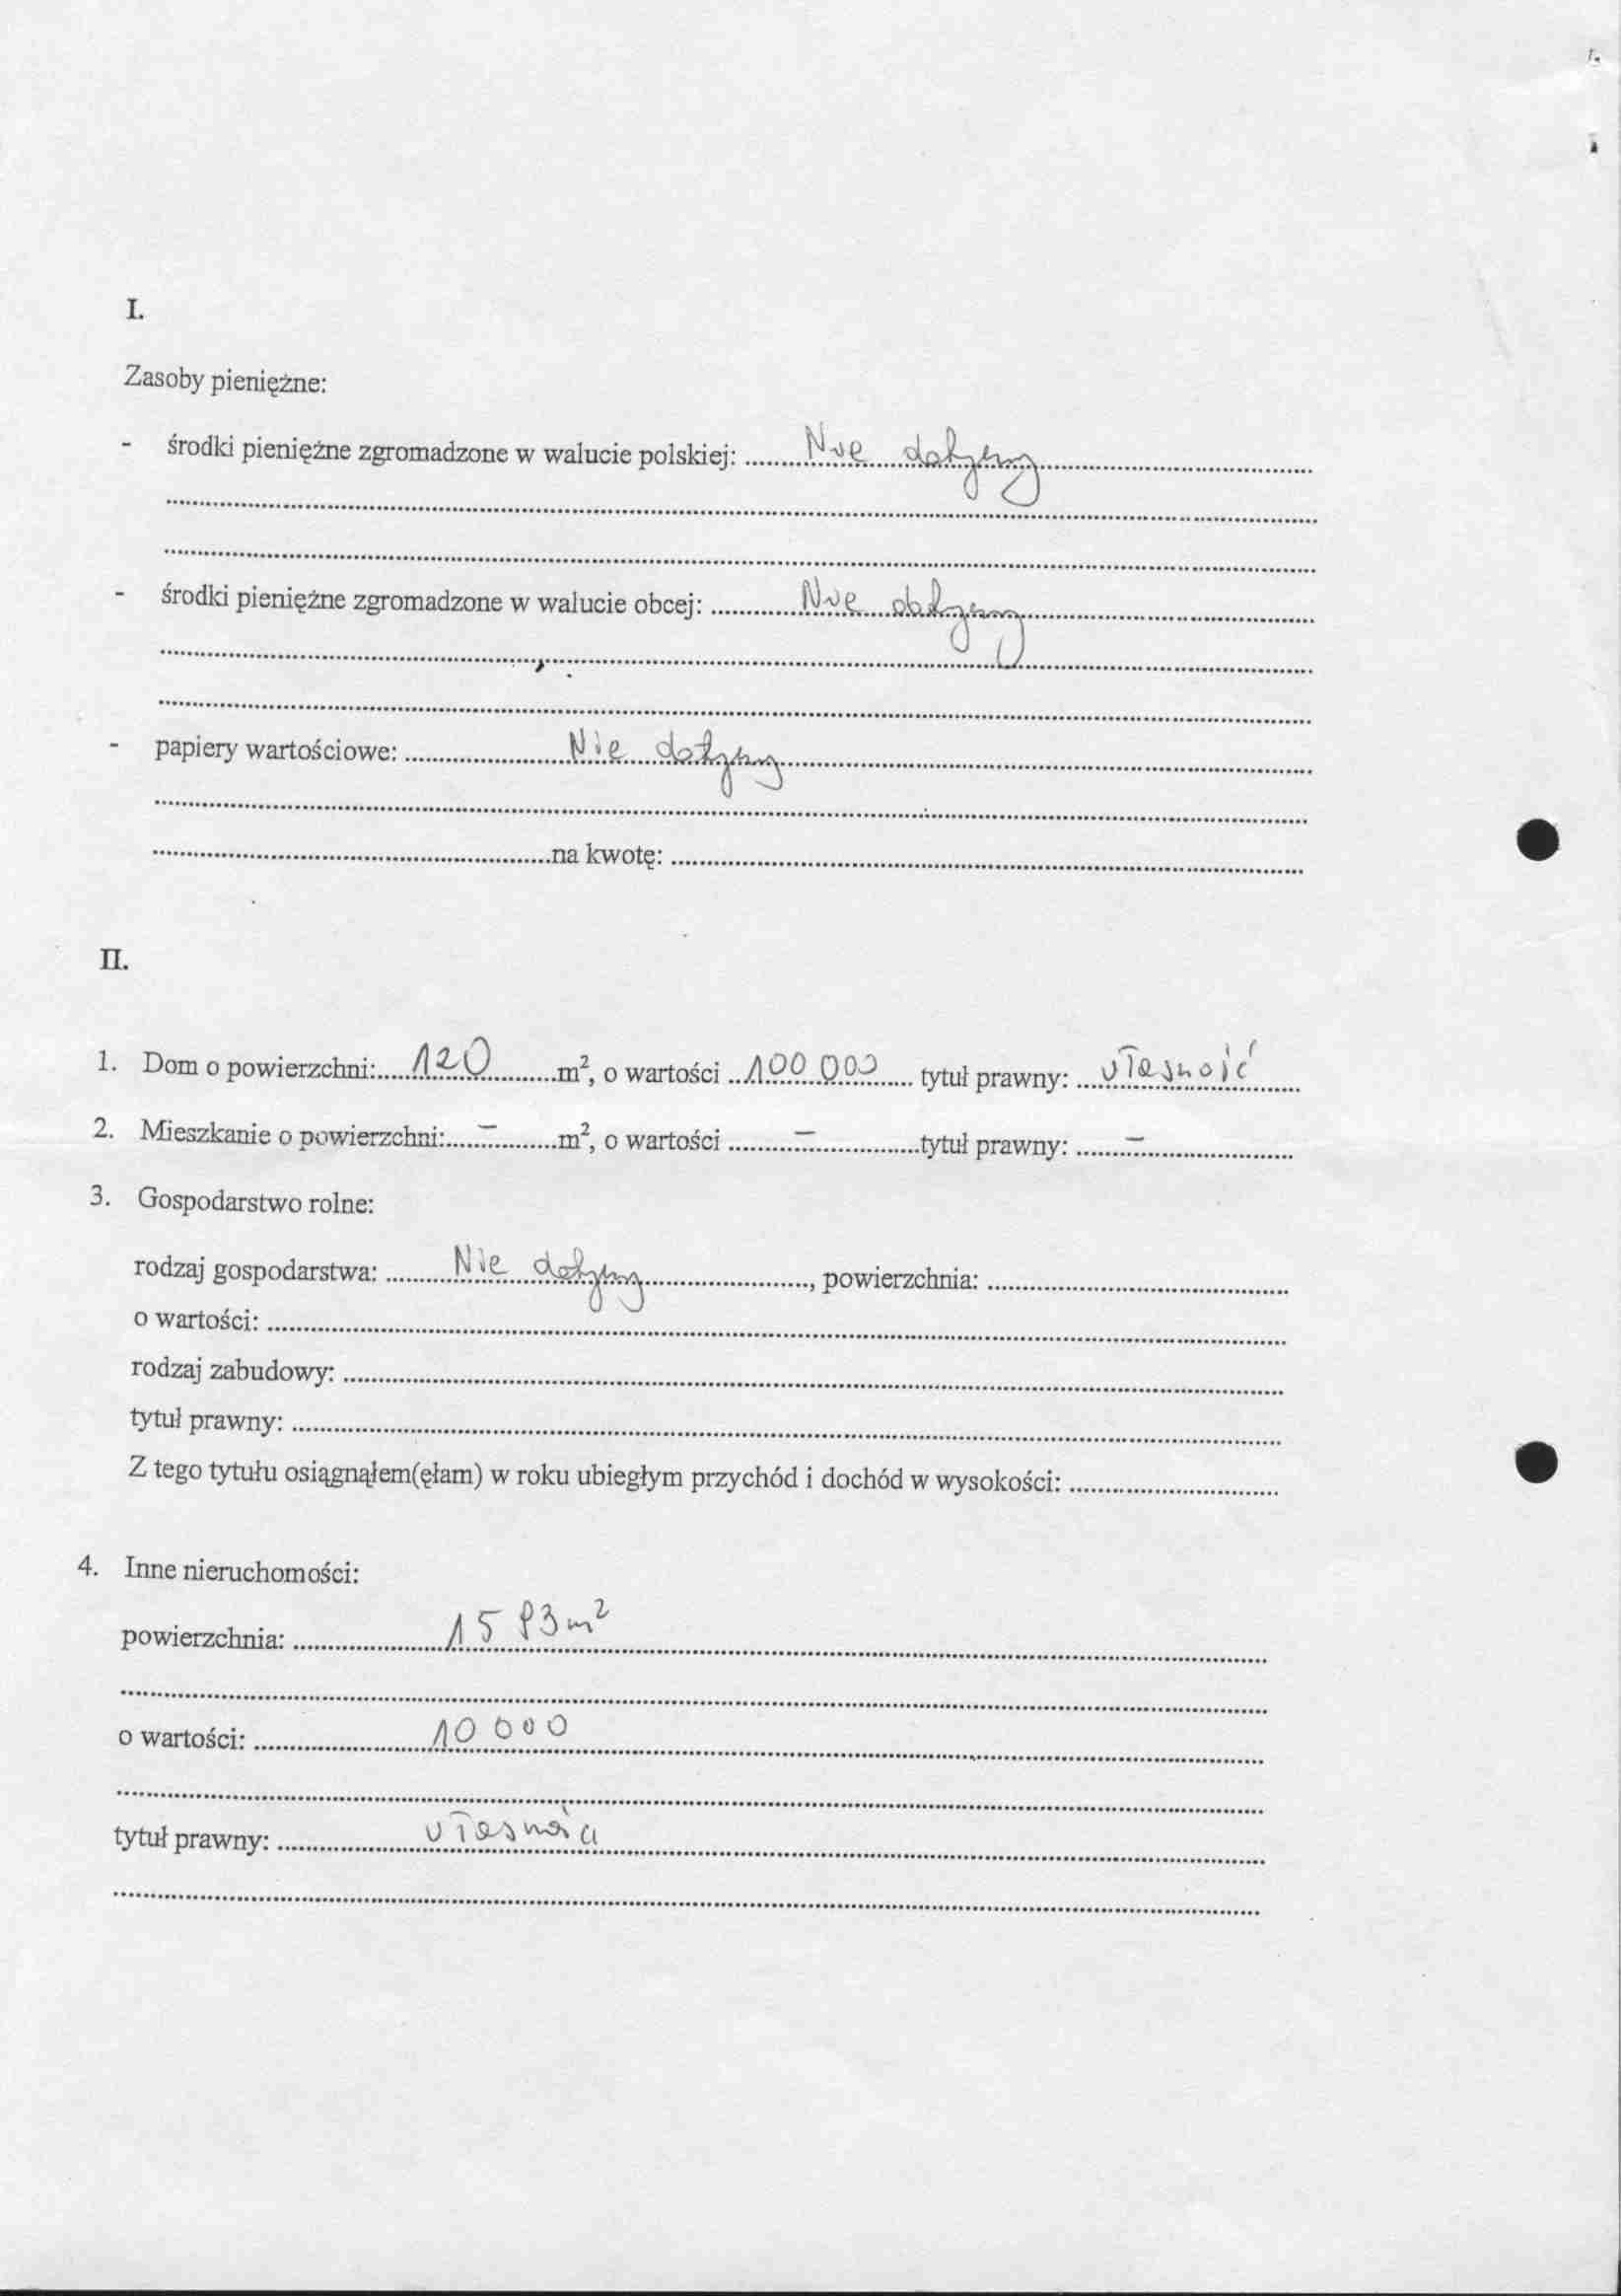 I.
Zasoby pieniężne:
- środki pieniężne zgromadzone w walucie polskiej: Nie dotyczy
- środki pieniężne zgromadzone w walucie obcej: Nie dotyczy
- papiery wartościowe: Nie dotyczy
na kwotę:
II.
1. Dom o powierzchni: 120 m², o wartości 100 000 tytuł prawny: własność
2. Mieszkanie o powierzchni: – m², o wartości – tytuł prawny: –
3. Gospodarstwo rolne:
rodzaj gospodarstwa: Nie dotyczy, powierzchnia:
o wartości:
rodzaj zabudowy:
tytuł prawny:
Z tego tytułu osiągnąłem(ęłam) w roku ubiegłym przychód i dochód w wysokości:
4. Inne nieruchomości:
powierzchnia: 1583 m²
o wartości: 10 000
tytuł prawny: własność